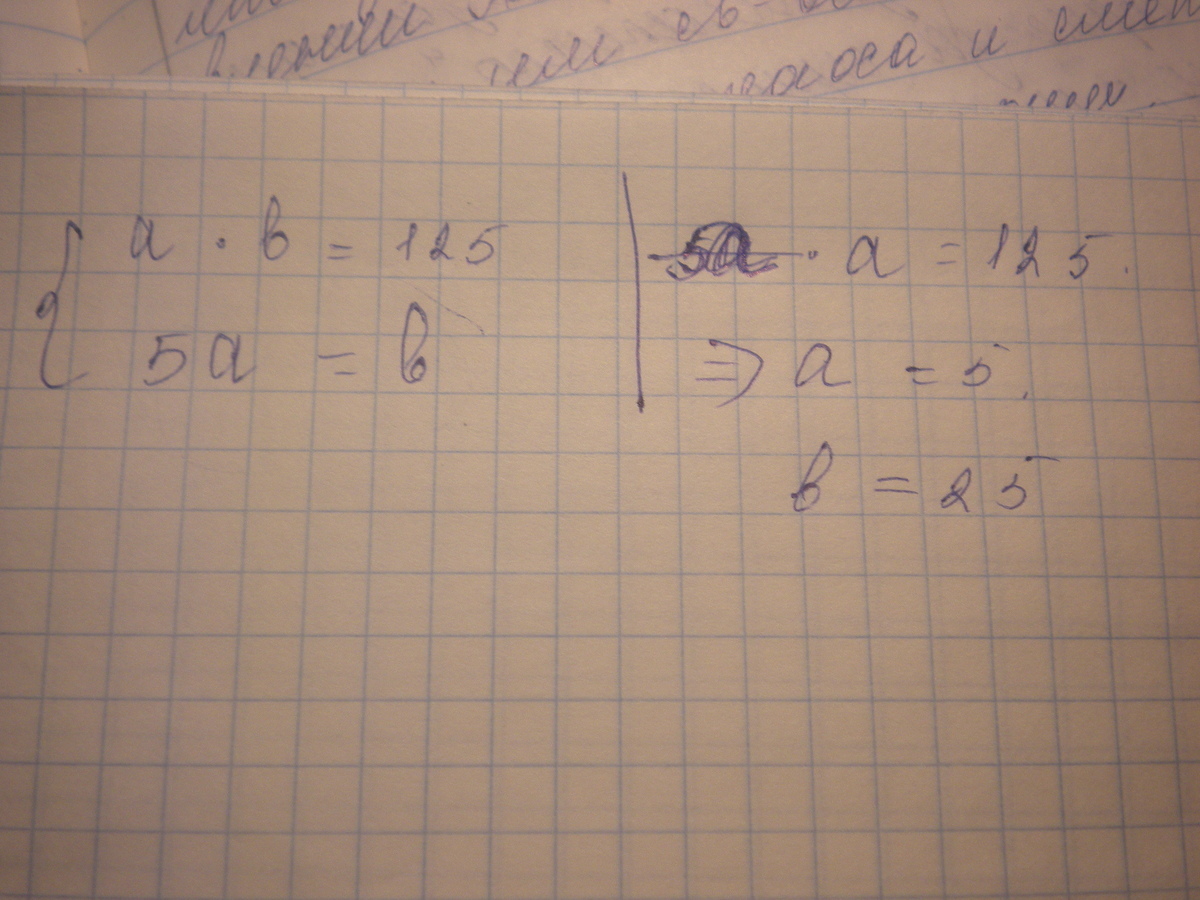 и сме
a · b = 125
5a = b
5a · a = 125.
⇒ a = 5.
b = 25